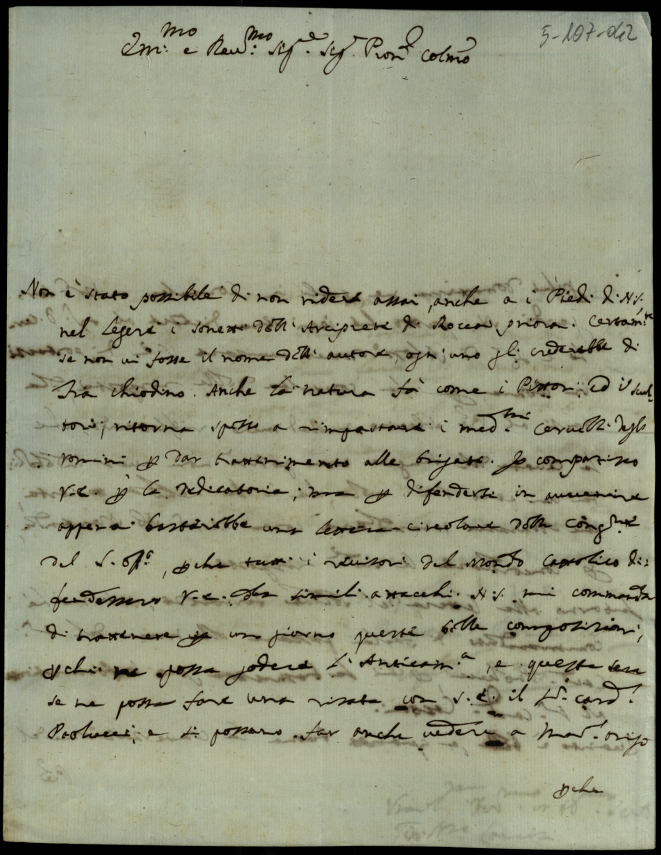 5-107-042
Em.mo e Rev.mo Sig.e Sig.e Pron. Colmo
Non è stato possibile di non ridere assai, anche a i Piedi di N.S.
nel legere i sonetti dell'Arciprete di Rocca priora. Certam.te
se non vi fosse il nome dell'autore, ogni uno gli crederebbe di
fra chiodino. Anche la natura fà come i Pittori, ed i scul-
tori, ritorna spesso a rimpastare i med.mi Cervelli degli
uomini p dar trattenimento alle brigate. Io compatisco
V.E. p la dedicatoria; ma p defenderse in avvenire
appena basterebbe una lettera circolare della Congne
del S. Offo, pche tutti i revisori del Mondo Cattolico di-
fendessero V.E. da simili attacchi. N.S. mi commanda
di trattenere p un giorno queste belle composizioni,
pche ne possa godere l'Anticam.a, e questa sera
se ne possa fare una risata con S.E. il Sr. Card.
Paolucci, e si possano far anche vedere a Mad. Origo
pche